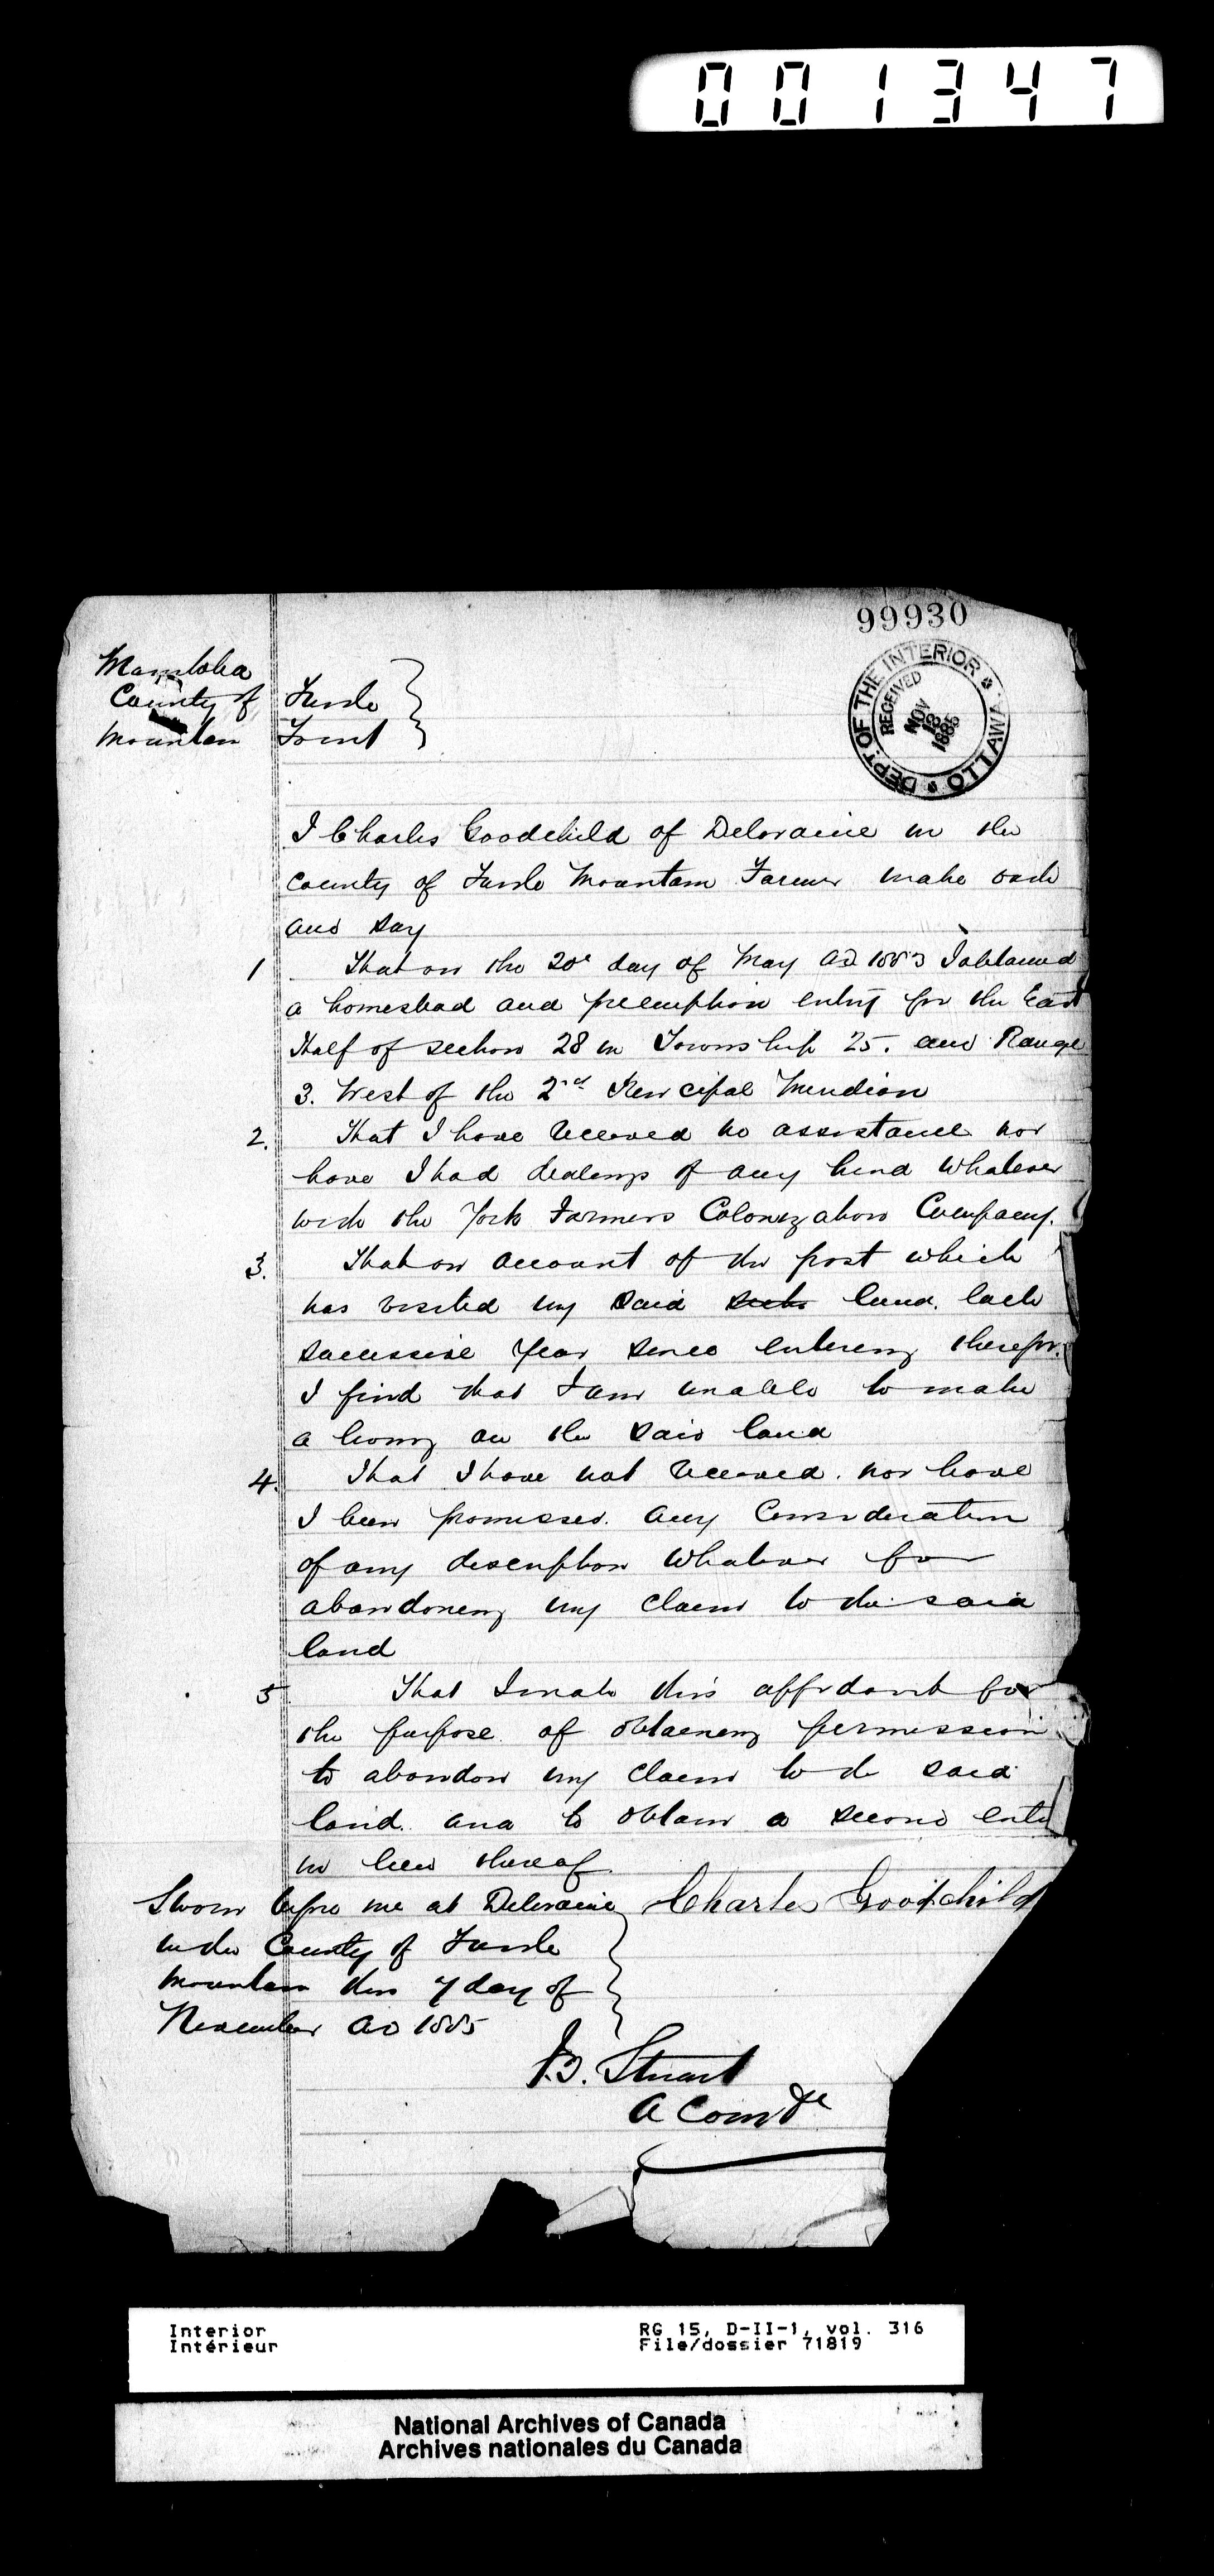 001347
99930
DEPT. OF THE INTERIOR
OTTAWA
RECEIVED
NOV
1885
Manitoba
County of Turtle
Mountain
I Charles Goodchild of Deloraine in the
County of Turtle Mountain Farmer make oath
and say
1 That on the 20th day of May AD 1883 I obtained
a homestead and preemption entry for the East
Half of section 28 in Township 25. and Range
3. West of the 2nd Principal Meridian
2. That I have received no assistance nor
have I had dealings of any kind whatever
with the York Farmers Colonization Company.
3. That on account of the frost which
has visited my said land each
successive year since entering therefor.
I find that I am unable to make
a living on the said land
4. That I have not received nor have
I been promised any Consideration
of any description whatever for
abandoning my claim to the said
land
5 That I make this affidavit for
the purpose of obtaining permission
to abandon my claim to the said
land and to obtain a second entry
in lieu thereof
Sworn before me at Deloraine
in the County of Turtle
Mountain this 7 day of
November AD 1885
Charles Goodchild
Stuart
A Com
Interior
Intérieur
RG 15, D-II-1, vol. 316
File/dossier 71819
National Archives of Canada
Archives nationales du Canada